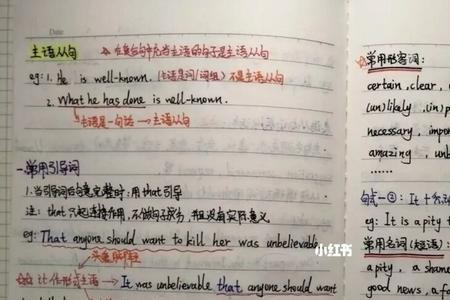 Date
主语从句 ☆在复合句中充当主语的句子是主语从句
eg: 1. He is well-known. (主语是词/词组) 不是主语从句
2. What he has done is well-known.
主语是一句话 → 主语从句
一.常用引导词
1.当引导词后句意完整时: 用that引导
注: that 只起连接作用, 不做句子成分, 且没有实际意义
eg: That anyone should want to kill her was unbelievable.
☆☆ it 作形式主语 → It was unbelievable that anyone should want
小红书
☆常用形容词:
certain, clear,
(un)likely, (im)p
necessary, impor
amazing, unb
......
句式一②: It +
eg: It is a pity t
常用名词(短语):
a pity, a shame
good news, a fo